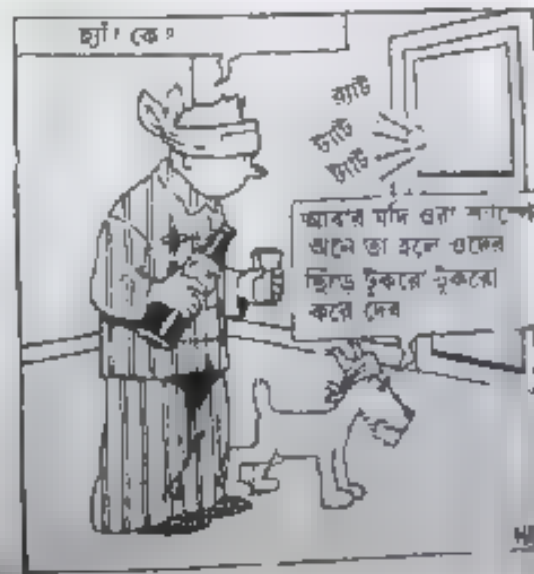 হ্যাঁ! কে?
র‍্যাট
ট্যাট
ট্যাট
আবার যদি ওরা
আনে তা হলে ওদের
ছিঁড়ে টুকরো টুকরো
করে দেব